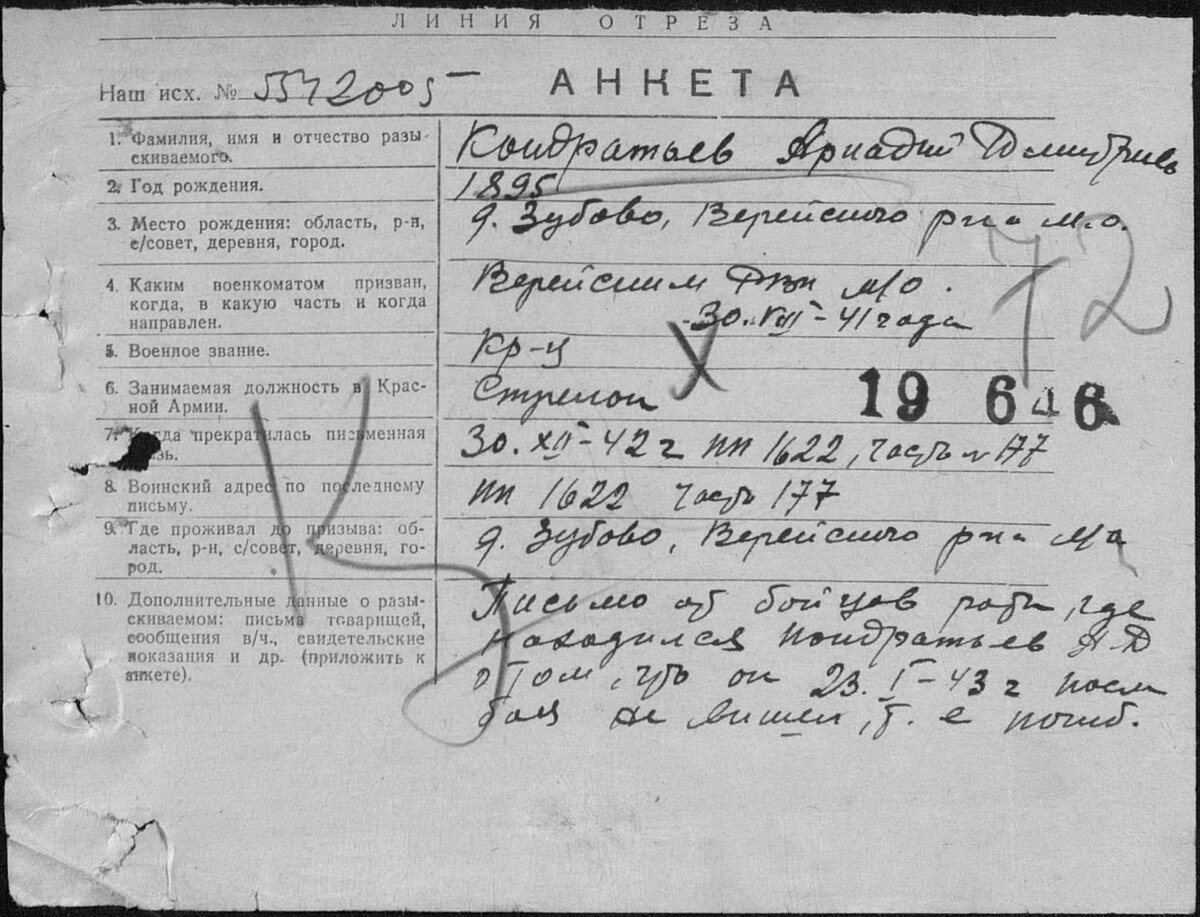 ЛИНИЯ ОТРЕЗА
АНКЕТА
Наш исх. №
1. Фамилия, имя и отчество разы-
скиваемого.
Кондратьев Аркадий Дмитриев
2. Год рождения.
1895
3. Место рождения: область, р-н,
с/совет, деревня, город.
д. Зубово, Верейского р-на м.о.
4. Каким военкоматом призван,
когда, в какую часть и когда
направлен.
Верейским РВК м/о.
30. VIII-41 года
5. Военное звание.
Кр-ц
6. Занимаемая должность в Крас-
ной Армии.
Стрелок
7. Когда прекратилась письменная
связь.
30. XII-42 г пп 1622, часть № 177
8. Воинский адрес по последнему
письму.
пп 1622 часть 177
9. Где проживал до призыва: об-
ласть, р-н, с/совет, деревня, го-
род.
д. Зубово, Верейского р-на м/о
10. Дополнительные данные о разы-
скиваемом: письма товарищей,
сообщения в/ч., свидетельские
показания и др. (приложить к
анкете).
Письмо от бойцов роты, где
находился Кондратьев А Д
о том, что он 23. I-43 г после
боя не вышел, т. е погиб.
72
19 6 6